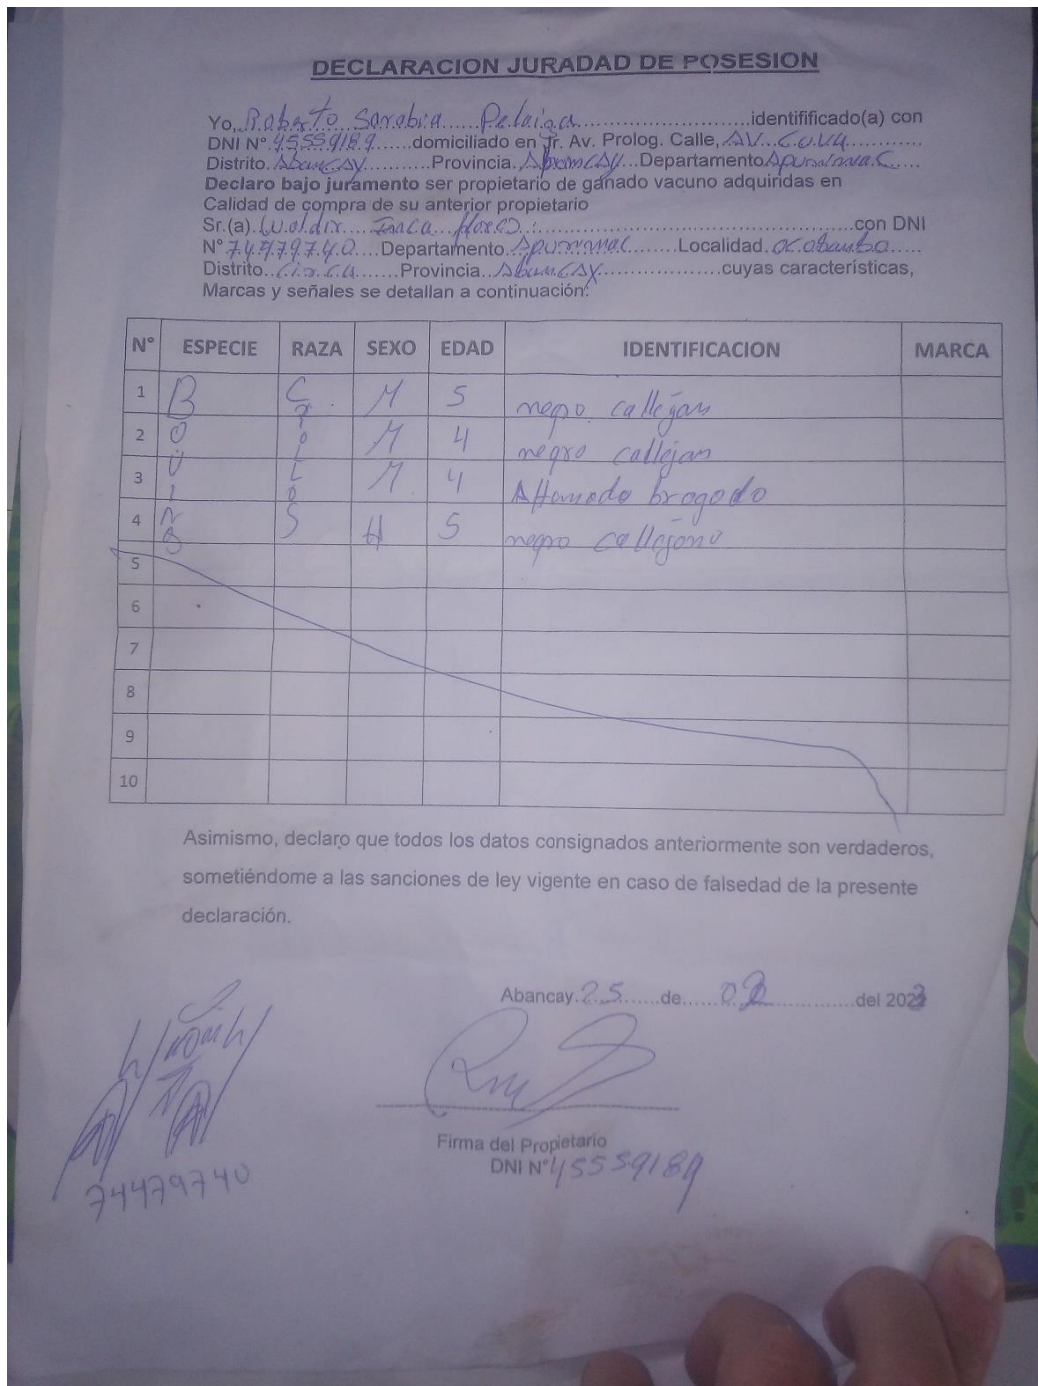 DECLARACION JURADAD DE POSESION
Yo, Roberto Sarabia Pelaiza identifificado(a) con
DNI N° 45559189 domiciliado en Jr. Av. Prolog. Calle, AV.
Distrito. Abancay Provincia. Abancay Departamento Apurimac
Declaro bajo juramento ser propietario de ganado vacuno adquiridas en
Calidad de compra de su anterior propietario
Sr.(a). Waldir Inca con DNI
N° 74479740 Departamento Apurimac Localidad. ocobamba
Distrito. Provincia. Abancay cuyas características,
Marcas y señales se detallan a continuación:
N° ESPECIE RAZA SEXO EDAD IDENTIFICACION MARCA
1 B C M 5 negro callejan
2 O R M 4 negro callejan
3 M 4 brogodo
4 S H 5 negro callejono
5
6
7
8
9
10
Asimismo, declaro que todos los datos consignados anteriormente son verdaderos,
sometiéndome a las sanciones de ley vigente en caso de falsedad de la presente
declaración.
Abancay. 25 de del 2023
Firma del Propietario
DNI N° 45559189
74479740